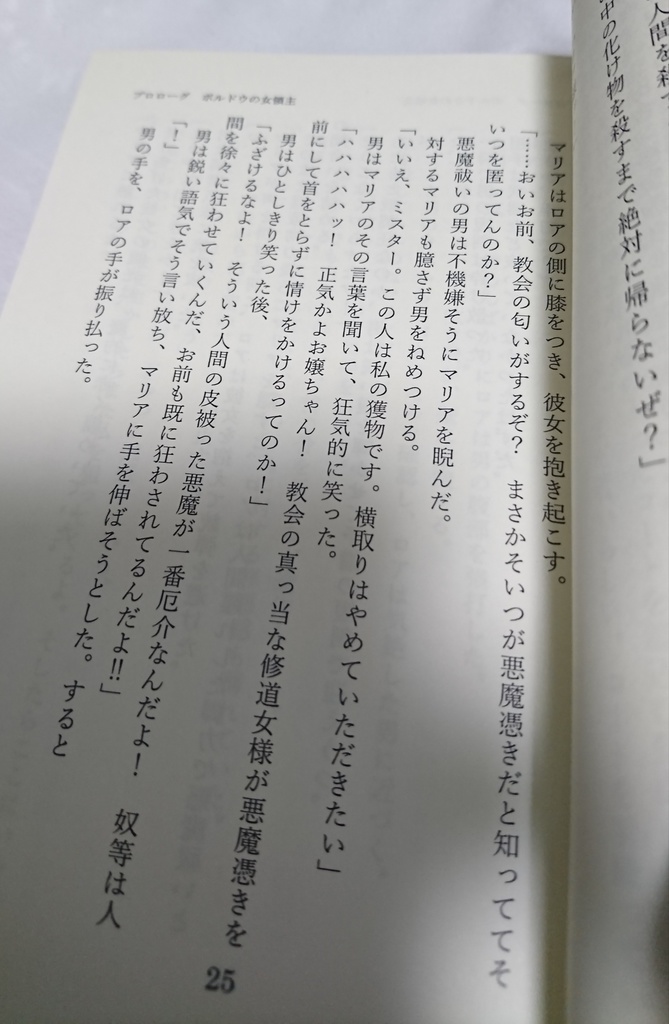 人間を殺
中の化け物を殺すまで絶対に帰らないぜ？」
プロローグ　ボルドウの女領主
マリアはロアの側に膝をつき、彼女を抱き起こす。
「……おいお前、教会の匂いがするぞ？　まさかそいつが悪魔憑きだと知っててそ
いつを匿ってんのか？」
悪魔祓いの男は不機嫌そうにマリアを睨んだ。
対するマリアも臆さず男をねめつける。
「いいえ、ミスター。この人は私の獲物です。横取りはやめていただきたい」
男はマリアのその言葉を聞いて、狂気的に笑った。
「ハハハハハッ！　正気かよお嬢ちゃん！　教会の真っ当な修道女様が悪魔憑きを
前にして首をとらずに情けをかけるってのか！」
男はひとしきり笑った後、
「ふざけるなよ！　そういう人間の皮被った悪魔が一番厄介なんだよ！　奴等は人
間を徐々に狂わせていくんだ、お前も既に狂わされてるんだよ!!」
男は鋭い語気でそう言い放ち、マリアに手を伸ばそうとした。すると
「！」
男の手を、ロアの手が振り払った。
25